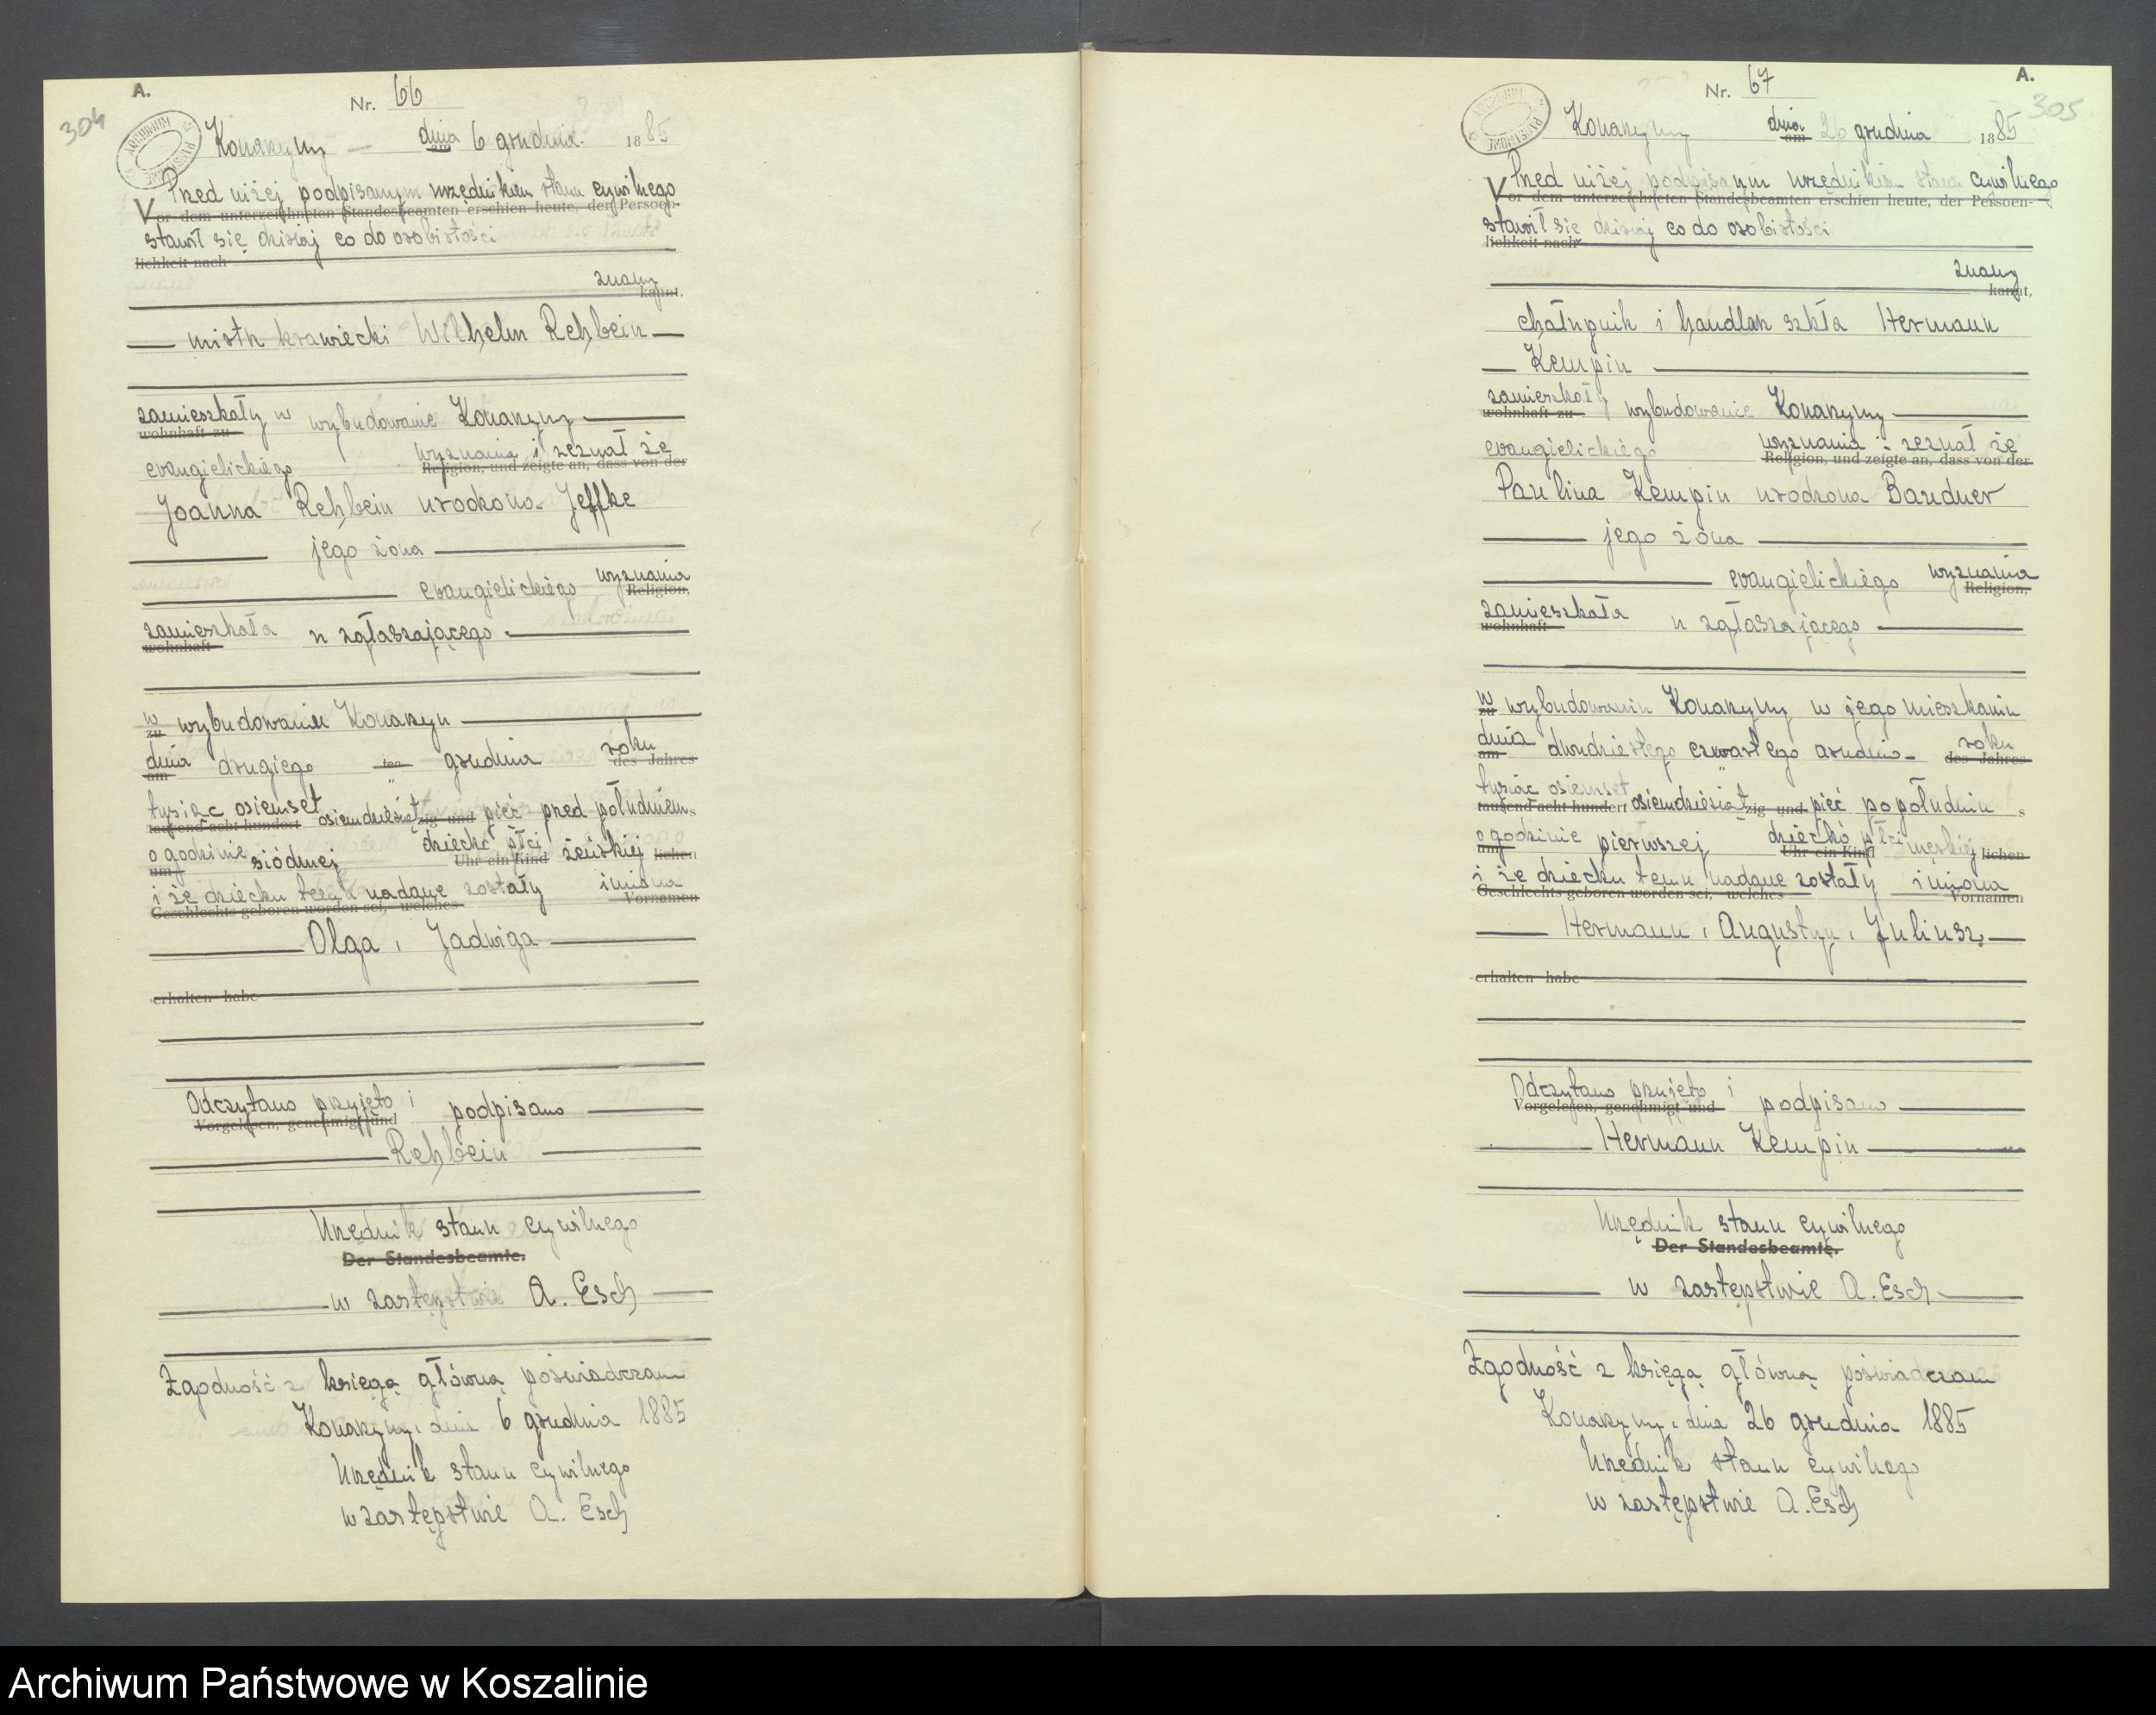 A.
Nr. 66
304
ARCHIWUM PAŃSTWOWE
Konarzyny dnia am 6 grudnia 1885
Przed niżej podpisanym urzędnikiem stanu cywilnego
Vor dem unterzeichneten Standesbeamten erschien heute, der Persoen-
stawił się dzisiaj co do osobistości
lichkeit nach
znany
kannt,
mistrz krawiecki Wilhelm Rehbein
zamieszkały w wybudowanie Konarzyny
wohnhaft zu
evangielickiego wyznania i zeznał że
Religion, und zeigte an, dass von der
Joanna Rehbein urodzona Jeffke
jego żona
evangielickiego wyznania
Religion,
zamieszkała u zgłaszającego
wohnhaft
w wybudowaniu Konarzyn
zu
dnia drugiego ten grudnia roku
am des Jahres
tysiąc osiemset osiemdziesiąt pięć przed południem
tausend acht hundert zig und s
o godzinie siódmej dziecko płci żeńskiej
um Uhr ein Kind lichen
i że dziecku temu nadane zostały imiona
Geschlechts geboren worden sei, welches Vornamen
Olga, Jadwiga
erhalten habe
Odczytano przyjęto i podpisano
Vorgelesen, genehmigt und
Rehbein
Urzędnik stanu cywilnego
Der Standesbeamte.
w zastępstwie A. Esch
Zgodność z księgą główną poświadczam
Konarzyny, dnia 6 grudnia 1885
Urzędnik stanu cywilnego
w zastępstwie A. Esch
A.
Nr. 67
305
ARCHIWUM PAŃSTWOWE
Konarzyny dnia am 26 grudnia 1885
Przed niżej podpisanym urzędnikiem stanu cywilnego
Vor dem unterzeichneten Standesbeamten erschien heute, der Persoen-
stawił się dzisiaj co do osobistości
lichkeit nach
znany
kannt,
chałupnik i handlarz szkła Hermann
Kempin
zamieszkały wybudowanie Konarzyny
wohnhaft zu
evangielickiego wyznania i zeznał że
Religion, und zeigte an, dass von der
Paulina Kempin urodzona Bandner
jego żona
evangielickiego wyznania
Religion,
zamieszkała u zgłaszającego
wohnhaft
w wybudowaniu Konarzyny w jego mieszkaniu
zu
dnia dwudziestego czwartego grudnia roku
am des Jahres
tysiąc osiemset osiemdziesiąt pięć po południu
tausend acht hundert zig und s
o godzinie pierwszej dziecko płci męskiej
um Uhr ein Kind lichen
i że dziecku temu nadane zostały imiona
Geschlechts geboren worden sei, welches Vornamen
Hermann, Augustyn, Juliusz
erhalten habe
Odczytano przyjęto i podpisano
Vorgelesen, genehmigt und
Hermann Kempin
Urzędnik stanu cywilnego
Der Standesbeamte.
w zastępstwie A. Esch
Zgodność z księgą główną poświadczam
Konarzyny, dnia 26 grudnia 1885
Urzędnik stanu cywilnego
w zastępstwie A. Esch
Archiwum Państwowe w Koszalinie